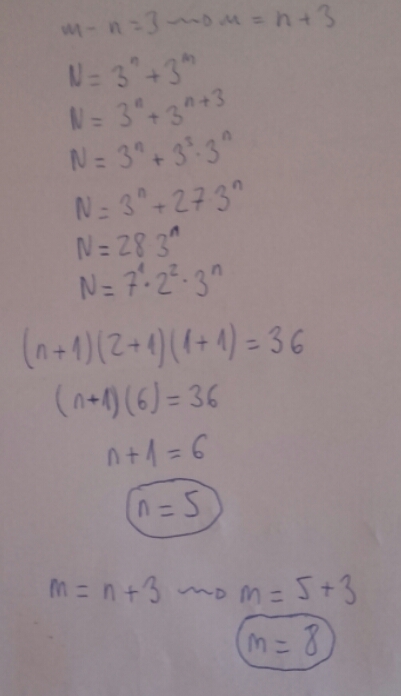 m - n = 3 ⇝ m = n + 3
N = 3ⁿ + 3ᵐ
N = 3ⁿ + 3ⁿ⁺³
N = 3ⁿ + 3³ · 3ⁿ
N = 3ⁿ + 27 3ⁿ
N = 28 3ⁿ
N = 7¹ · 2² · 3ⁿ
(n+1)(2+1)(1+1) = 36
(n+1)(6) = 36
n + 1 = 6
n = 5
m = n + 3 ⇝ m = 5 + 3
m = 8